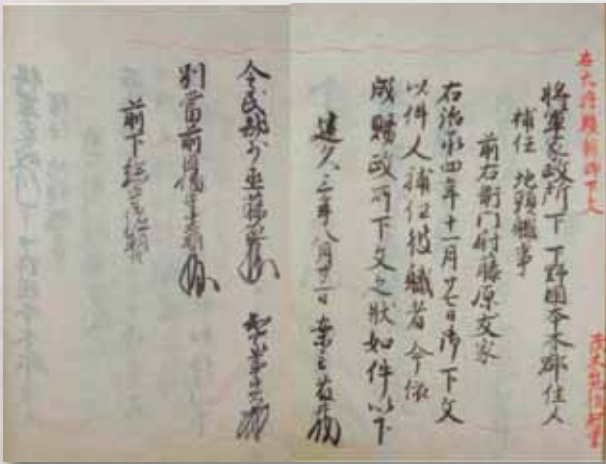 右大将頼朝御下文
将軍家政所下 下野國本木郡住人
補任 地頭職事
前右衛門尉藤原友家
右治承四年十一月廿七日御下文
以件人補任彼職者今依
成賜政所下文之状如件以下
建久三年八月廿二日 案主藤井
令民部少丞藤原
別當前因幡守中原朝臣
前下総守源朝臣